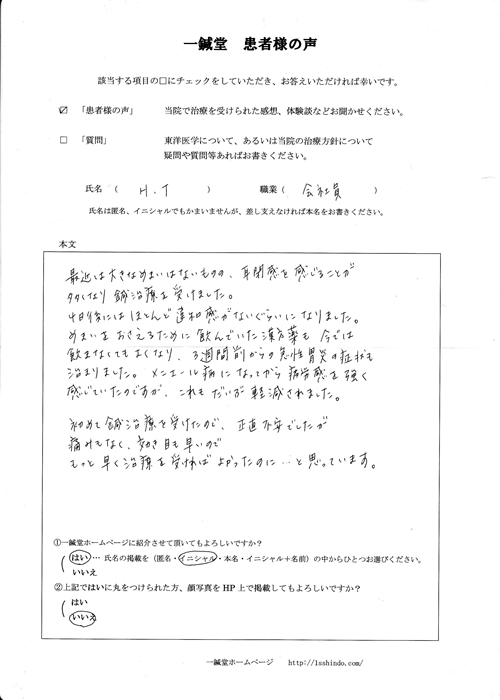 一鍼堂　患者様の声
該当する項目の□にチェックをしていただき、お答えいただければ幸いです。
☑ 「患者様の声」 当院で治療を受けられた感想、体験談などお聞かせください。
□ 「質問」 東洋医学について、あるいは当院の治療方針について
疑問や質問等あればお書きください。
氏名 （ H.T ） 職業（ 会社員 ）
氏名は匿名、イニシャルでもかまいませんが、差し支えなければ本名をお書きください。
本文
最近は大きなめまいはないものの、耳閉感を感じることが
多くなり 鍼治療を受けました。
4日後にはほとんど違和感がないぐらいになりました。
めまいをおさえるために飲んでいた漢方薬も 今では
飲まなくてもよくなり、3週間前からの急性胃炎の症状も
治まりました。メニエール病になってから疲労感を強く
感じていたのですが、これもだいぶ軽減されました。
初めて鍼治療を受けたので、正直不安でしたが
痛みもなく、効き目も早いので
もっと早く治療を受ければよかったのに…と思っています。
①一鍼堂ホームページに紹介させて頂いてもよろしいですか？
はい … 氏名の掲載を（匿名・イニシャル・本名・イニシャル＋名前）の中からひとつお選びください。
いいえ
②上記ではいに丸をつけられた方、顔写真を HP 上で掲載してもよろしいですか？
はい
いいえ
一鍼堂ホームページ http://1sshindo.com/